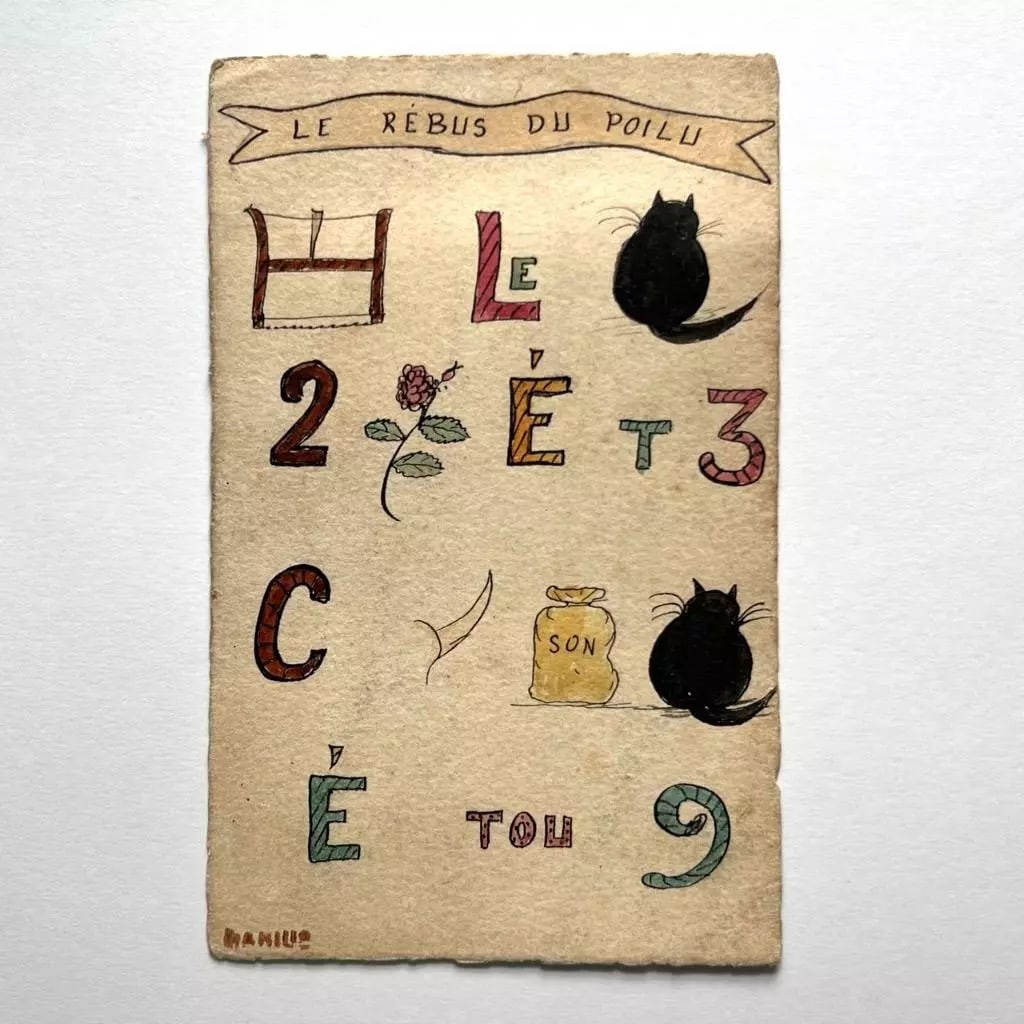 LE RÉBUS DU POILU
LE
2 É T 3
C SON
É TOU 9